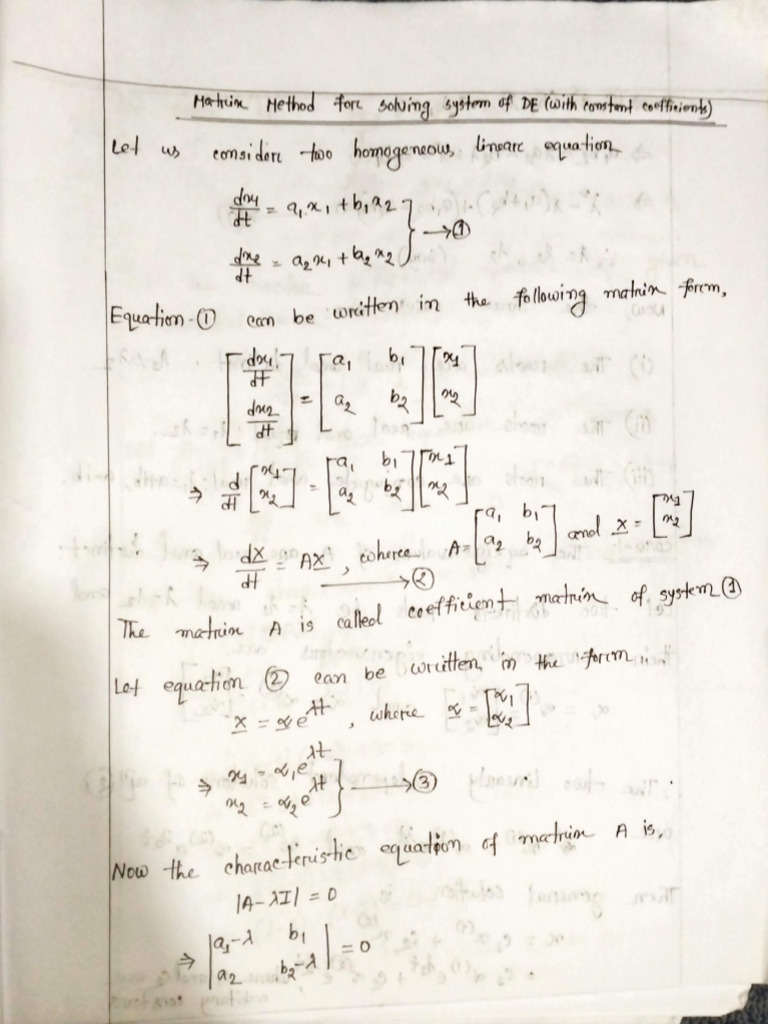 Matrix Method for solving system of DE (with constant coefficients)
Let us consider two homogeneous linear equation
dx₁/dt = a₁x₁ + b₁x₂
dx₂/dt = a₂x₁ + b₂x₂ } → ①
Equation-① can be written in the following matrix form,
[dx₁/dt; dx₂/dt] = [a₁ b₁; a₂ b₂] [x₁; x₂]
⇒ d/dt [x₁; x₂] = [a₁ b₁; a₂ b₂] [x₁; x₂]
⇒ dx/dt = Ax, where A = [a₁ b₁; a₂ b₂] and x = [x₁; x₂] → ②
The matrix A is called coefficient matrix of system ①
Let equation ② can be written in the form,
x = αe^λt, where α = [α₁; α₂]
⇒ x₁ = α₁e^λt
x₂ = α₂e^λt } → ③
Now the characteristic equation of matrix A is,
|A-λI| = 0
⇒ |a₁-λ b₁; a₂ b₂-λ| = 0